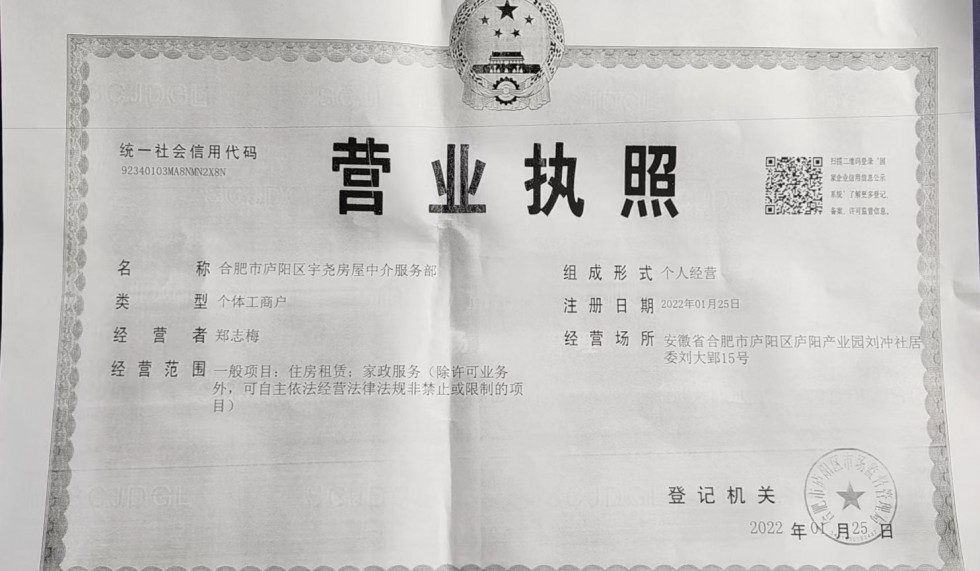 统一社会信用代码
92340103MA8NMN2X8N
营业执照
扫描二维码登录‘国
家企业信用信息公示
系统’了解更多登记、
备案、许可监管信息。
名称 合肥市庐阳区宇尧房屋中介服务部
类型 个体工商户
经营者 郑志梅
经营范围 一般项目：住房租赁；家政服务（除许可业务
外，可自主依法经营法律法规非禁止或限制的项
目）
组成形式 个人经营
注册日期 2022年01月25日
经营场所 安徽省合肥市庐阳区庐阳产业园刘冲社居
委刘大郢15号
登记机关
合肥市庐阳区市场监督管理局
2022 年 01 月 25 日